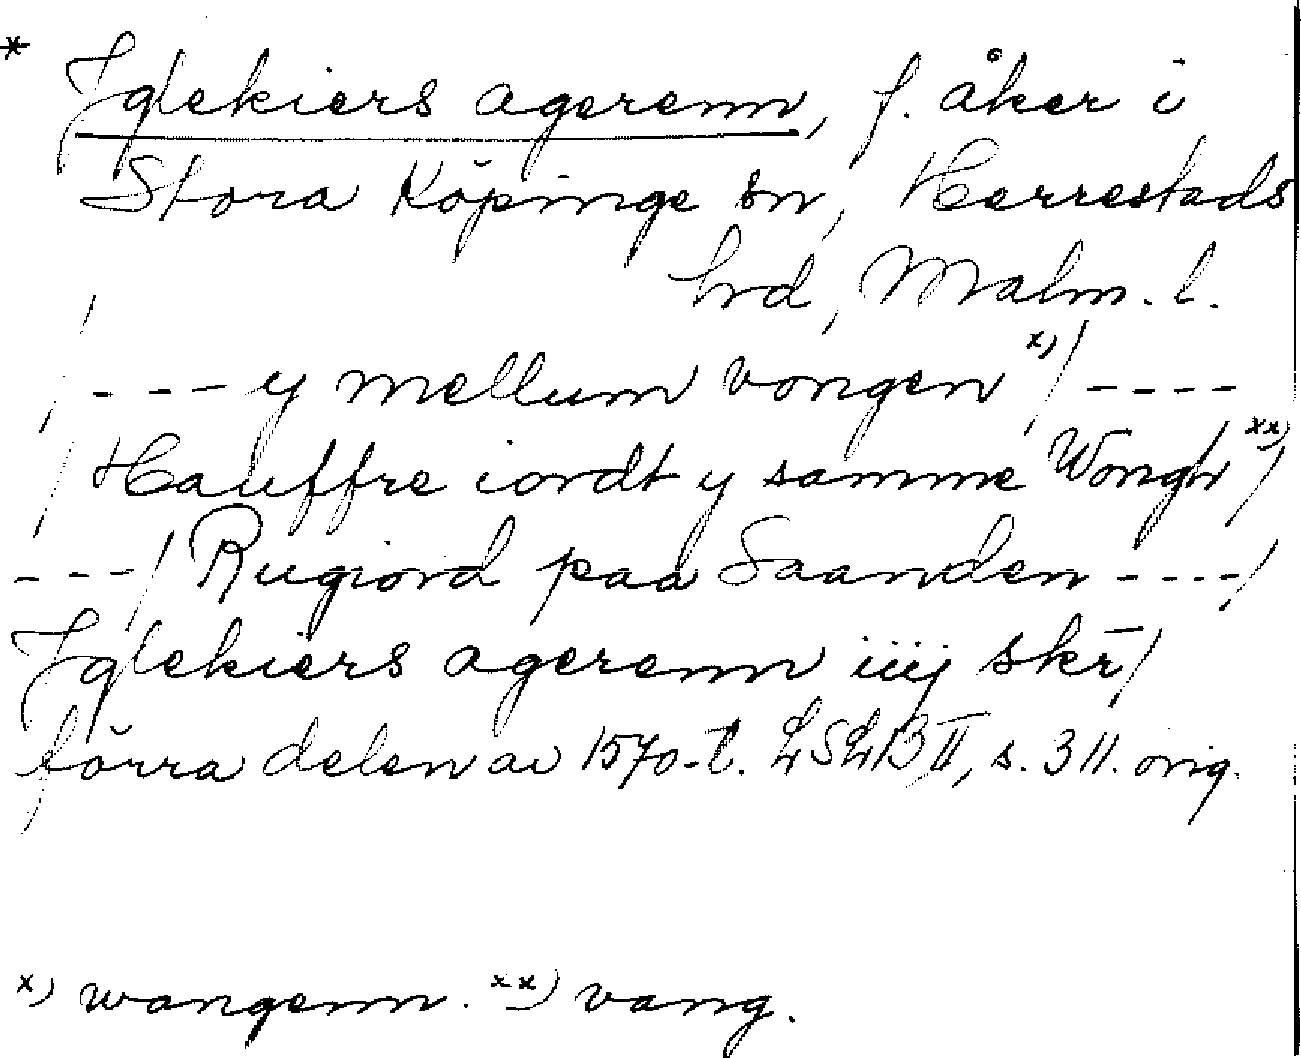 * Jglekiers agerenn, f. åker i
Stora Köpinge sn, Herrestads
hrd, Malm. l.
/ --- y mellum vongen x) / ----
/ Hauffre iordt y samme Wongh xx) /
--- / Rugiord paa Saanden ---- /
Jglekiers agerenn iiij skr̄ /
förra delen av 1570-t. LSLB II, s. 311. orig.
x) wangenn. xx) vang.